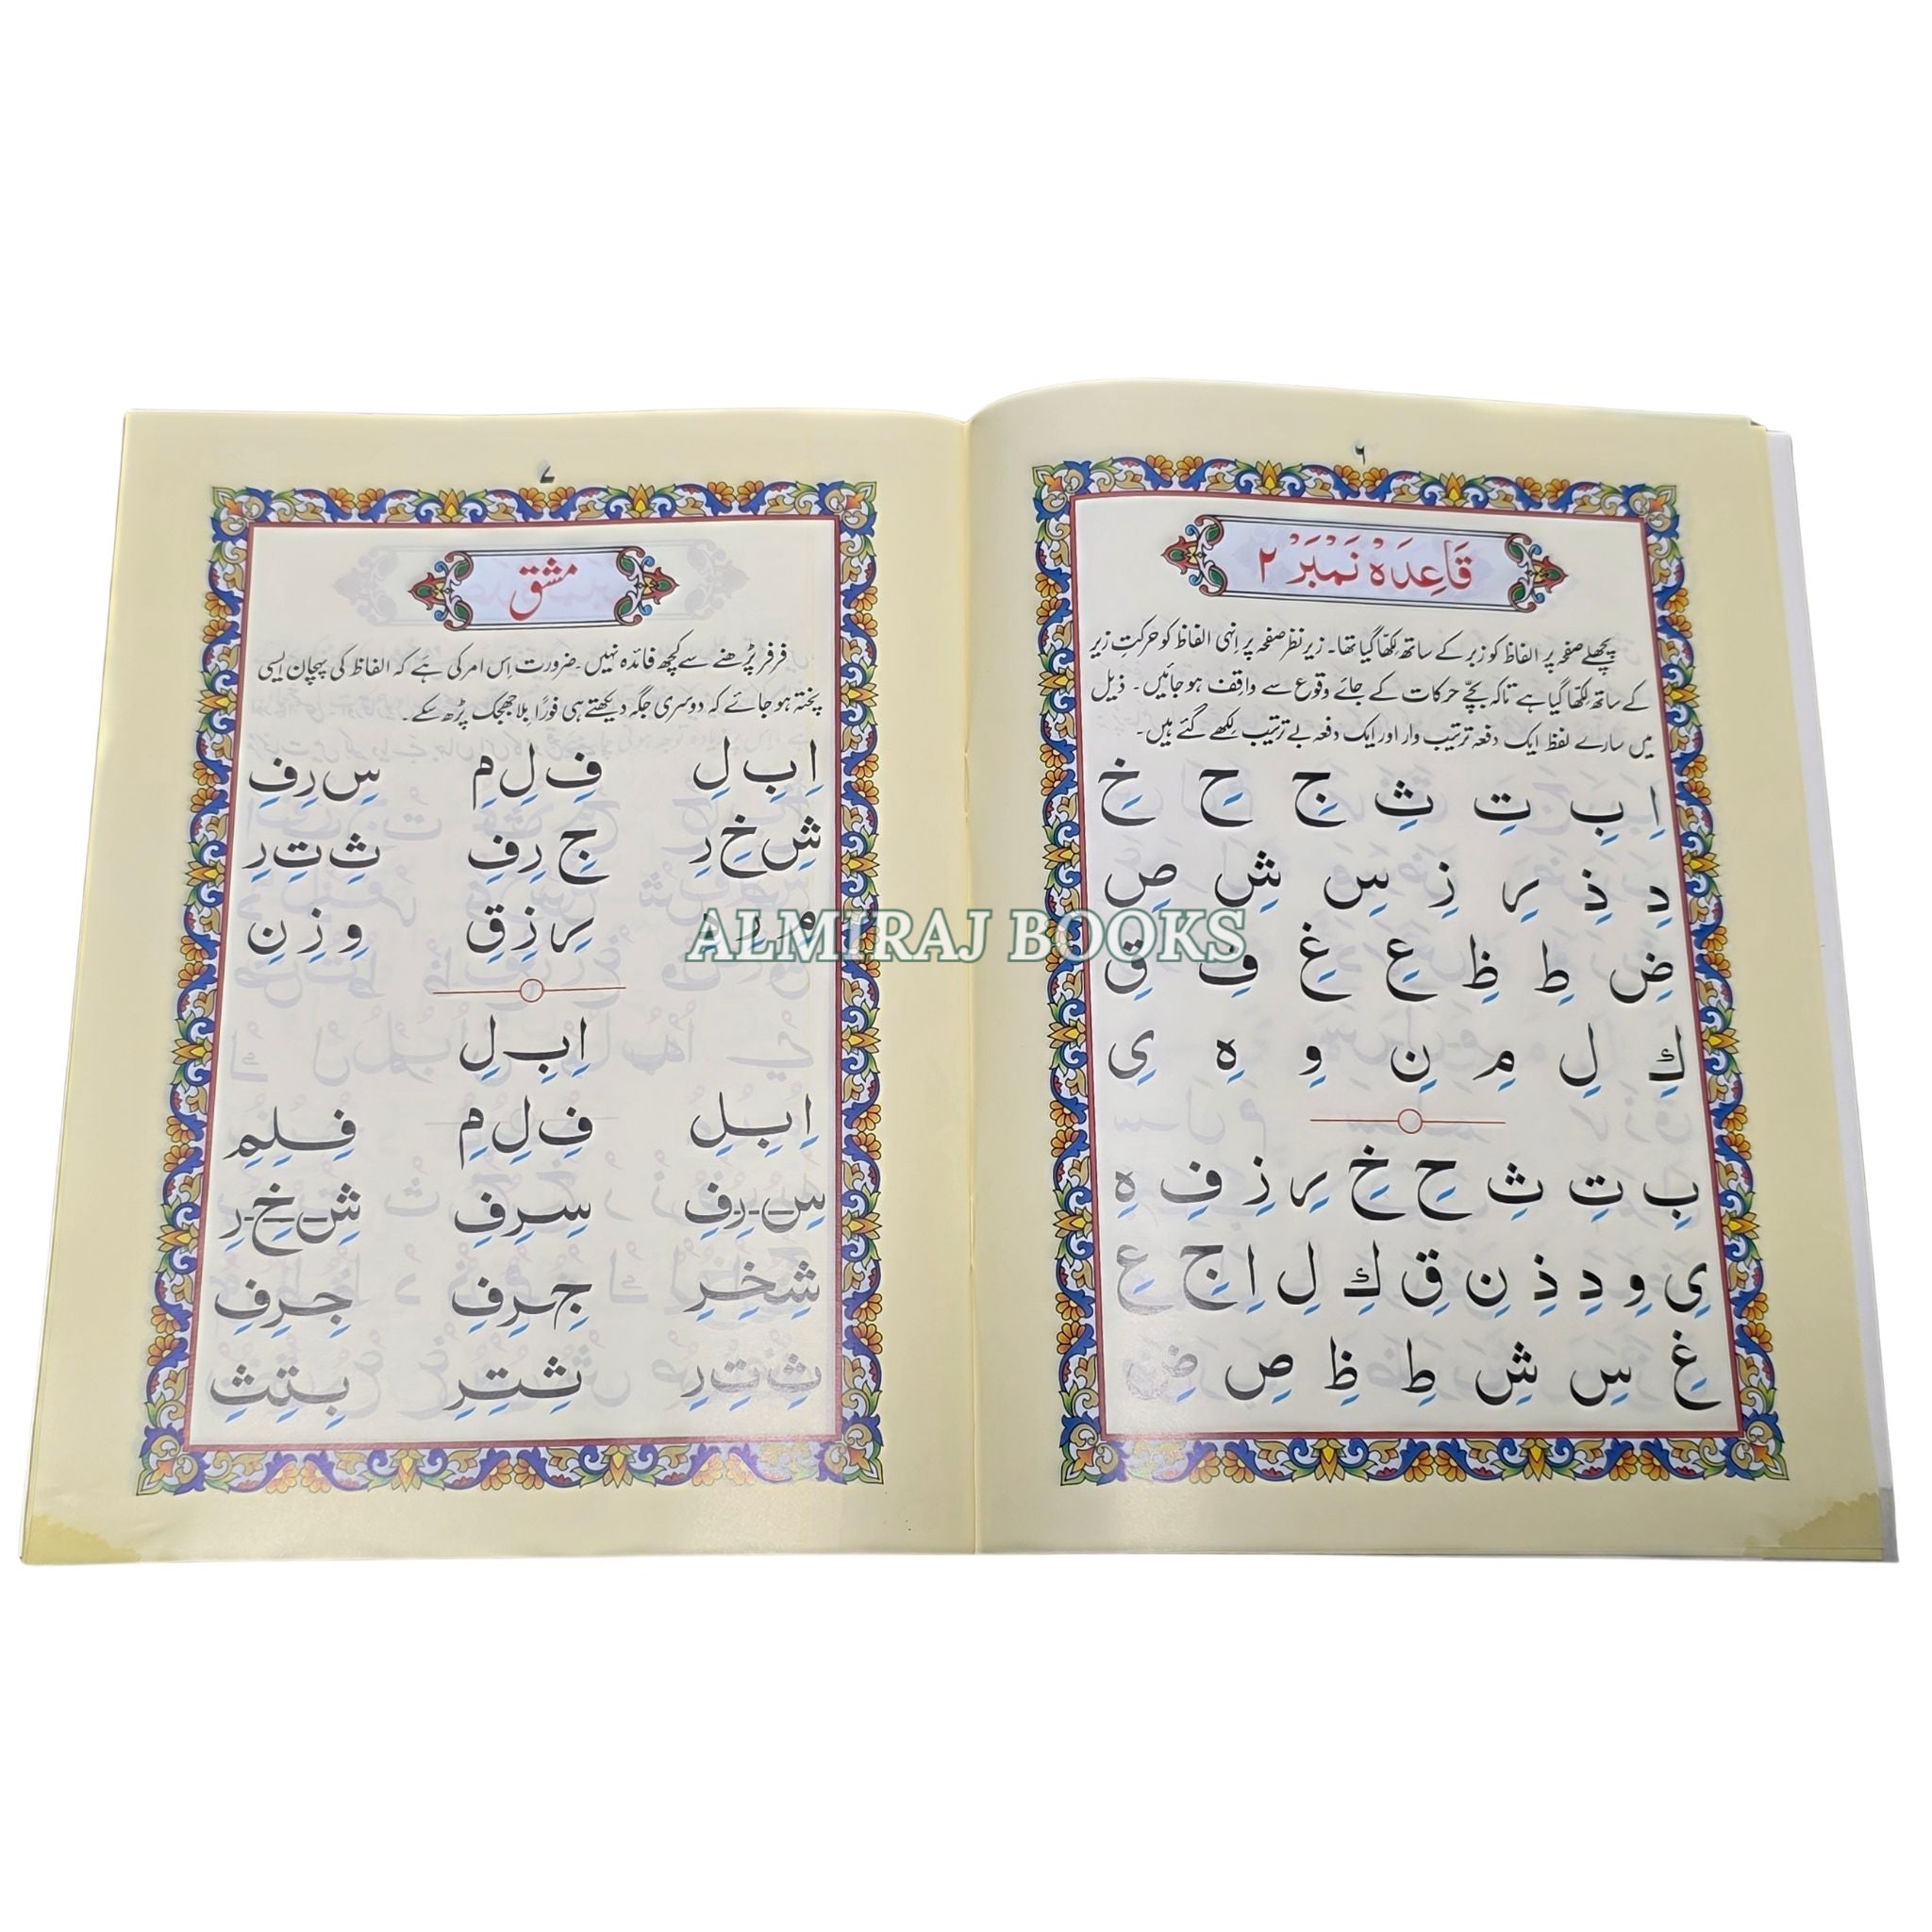 ٦
قَاعِدَہ نَمبَر ۲
پچھلے صفحہ پر الفاظ کو زبر کے ساتھ لکھّا گیا تھا۔ زیر نظر صفحہ پر اِنہی الفاظ کو حرکتِ زیر
کے ساتھ لکھّا گیا ہے تاکہ بچّے حرکات کے جائے وقوع سے واقف ہو جائیں۔ ذیل
میں سارے لفظ ایک دفعہ ترتیب وار اور ایک دفعہ بے ترتیب لکھے گئے ہیں۔
اِ بِ تِ ثِ جِ حِ خِ
دِ ذِ رِ زِ سِ شِ صِ
ضِ طِ ظِ عِ غِ فِ قِ
كِ لِ مِ نِ وِ هِ یِ
بِ تِ ثِ حِ خِ رِ زِ فِ هِ
یِ وِ دِ ذِ نِ قِ كِ لِ اِ جِ عِ
غِ سِ شِ طِ ظِ صِ ضِ
۷
مشق
فرفر پڑھنے سے کچھ فائدہ نہیں۔ ضرورت اِس امر کی ہے کہ الفاظ کی پہچان ایسی
پختہ ہو جائے کہ دوسری جگہ دیکھتے ہی فورًا بِلا جھجک پڑھ سکے۔
اِ بِ لِ فِ لِ مِ سِ رِ فِ
شِ خِ رِ جِ رِ فِ ثِ تِ رِ
رِ زِ قِ وِ زِ نِ
اِ بِ لِ
اِبِلِ فِ لِ مِ فِلِمِ
سِ-رِ-فِ سِرِفِ شِ-خِ-رِ
شِخِرِ جِ-رِفِ جِرِفِ
ثِ-تِ-رِ ثِتِرِ بِتِثِ
ALMIRAJ BOOKS